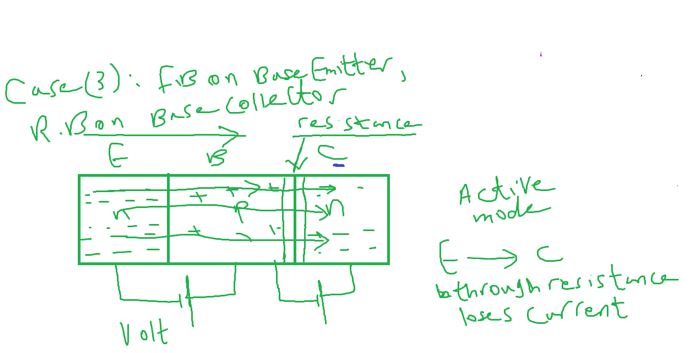 Case(3): F.B on Base Emitter,
R.B on Base Collector
resistance
E B C
n p n
Active
mode
E → C
through resistance
loses current
Volt